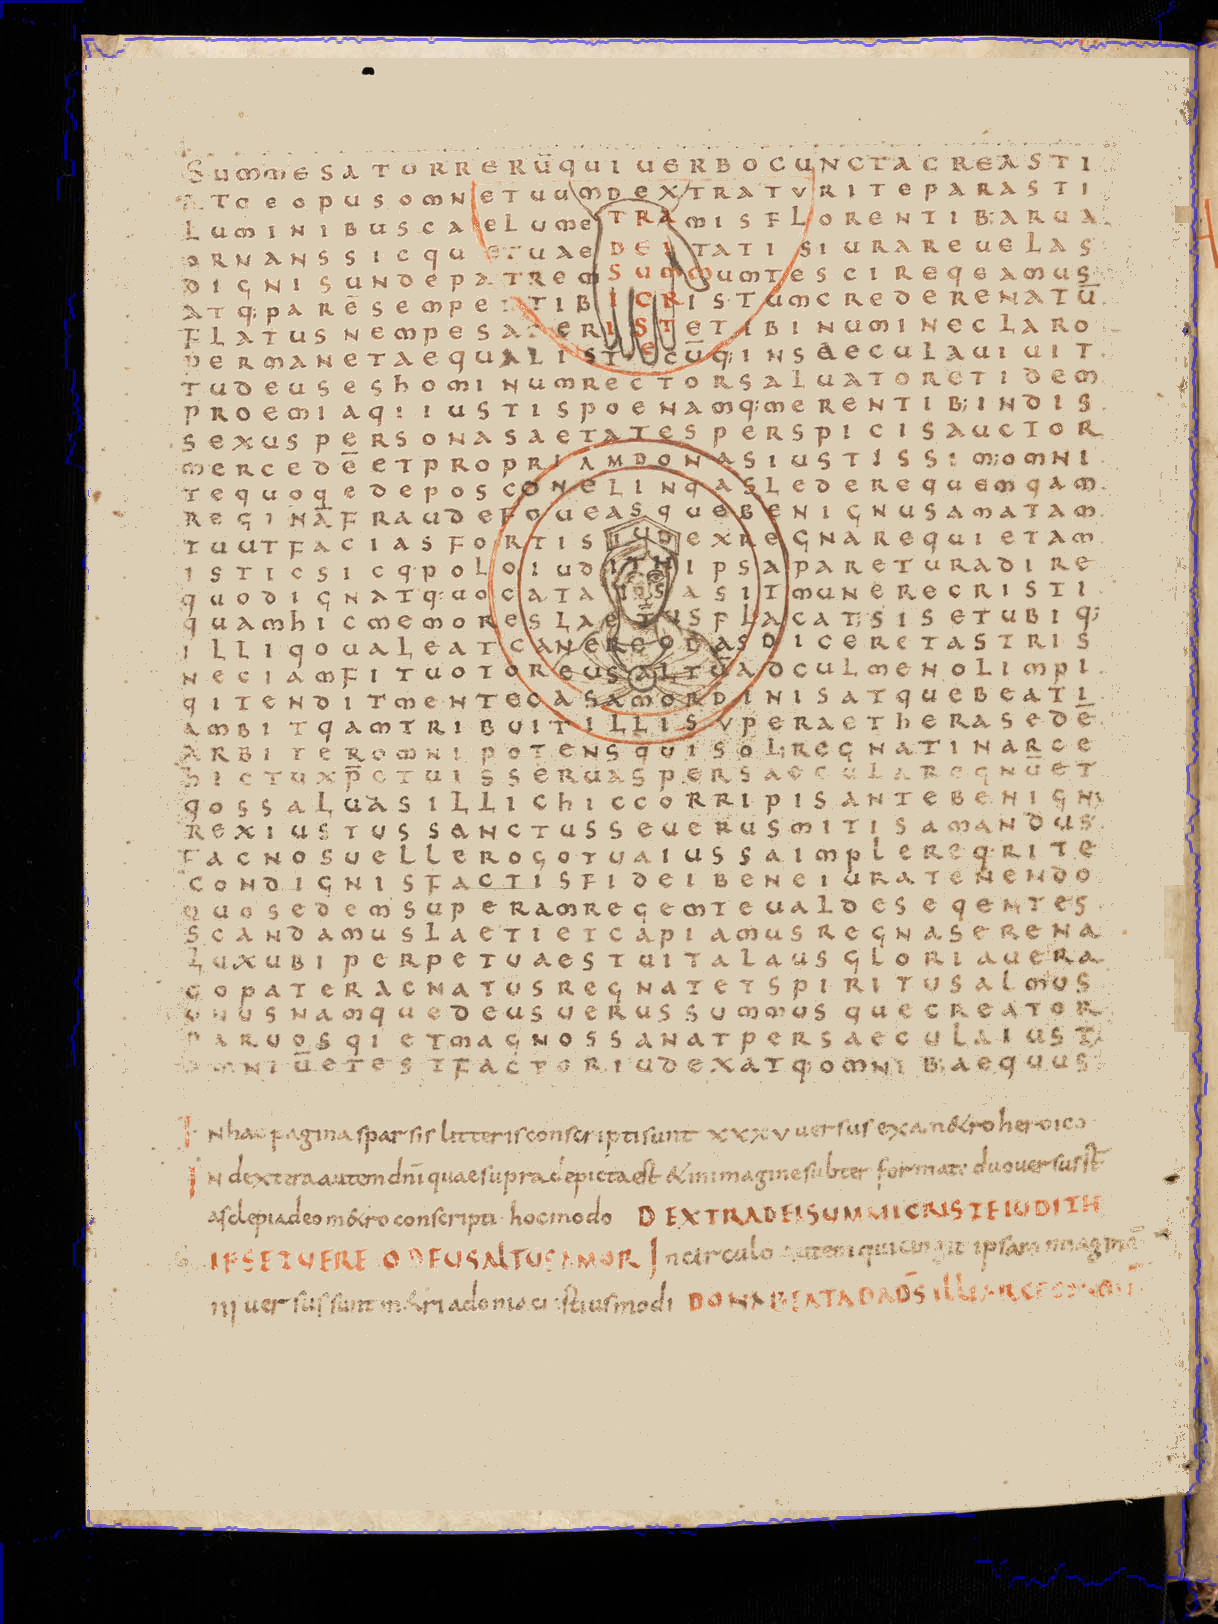 SUMMESATORRERŪQUIUERBOCUNCTACREASTI
ATQEOPUSOMNETUUMDEXTRATVRITEPARASTI
LUMINIBUSCAELUMETRAMISFLORENTIB;ARUA
ORNANSSICQUETUAEDEITATISIURAREUELAS
DIGNISUNDEPATREMSUMMUMTESCIREQEAMUS
ATQ;PARĒSEMPERTIBICRISTUMCREDERENATŪ
FLATUSNEMPESATERISTETIBINUMINECLARO
PERMANETAEQUALISTECŪQ;INSAECULAUIUIT
TUDEUSESHOMINUMRECTORSALUATORETIDEM
PROEMIAQIIUSTISPOENAMQ;MERENTIB;INDIS
SEXUSPERSONASAETATESPERSPICISAUCTOR
MERCEDĒETPROPRIAMDONASIUSTISSIM;OMNI
TEQUOQEDEPOSCONELINQASLEDEREQUEMQAM
REGINĀFRAUDEFOUEASQUEBENIGNUSAMATAM
TUUTFACIASFORTISIUDEXREGNAREQUIETAM
ISTICSICQPOLOIUDITHIPSAPARETURADIRE
QUODIGNATQ;UOCATAIPSASITMUNERECRISTI
QUAMHICMEMORESLAETUSFLACATSISETUBIQ;
ILLIQOUALEATCANEREODASDICERETASTRIS
NECIAMFITUOTOREUSALTŪADCULMENOLIMPI
QITENDITMENTECASAMORDINISATQUEBEATI
AMBITQAMTRIBUITILLISVPERAETHERASEDĒ
ARBITEROMNIPOTENSQUISOLREGNATINARCE
HICTUXP̄CTUISSERUASPERSAECULAREGNŪET
QOSSALUASILLICHICCORRIPISANTEBENIGN;
REXIUSTUSSANCTUSSEUERUSMITISAMANDUS
FACNOSUELLEROGOTUAIUSSAIMPLEREQRITE
CONDIGNISFACTISFIDEIBENEIURATENENDO
QUOSEDEMSUPERAMREGEMTEUALDESEQENTES
SCANDAMUSLAETIETCAPIAMUSREGNASERENA
LUXUBIPERPETUAESTUITALAUSGLORIAUERA
QOPATERACNATUSREGNATETSPIRITUSALMUS
UNUSNAMQUEDEUSUERUSSUMMUSQUECREATOR
PARUOSQIETMAGNOSSANATPERSAECULAIUST
OMNIŪETESTFACTORIUDEXATQ;OMNIB;AEQUUS
In hac pagina sparsis litteris conscripti sunt xxxv uersus exam&ro heroico
In dextera autem dn̄i quae supra depicta est & in imagine subter formata duo uersus s̄t
asclepiadeo m&ro conscripti hoc modo DEXTRA DEI SUMMI CRISTE IUDITH
IPSE TUERE O DEUS ALTUS AMOR In circulo autem qui cingit ipsam imaginē
IIII uersus sunt m&ri adonici istiusmodi DONA BEATA DA DS̄ ILLI ARCE